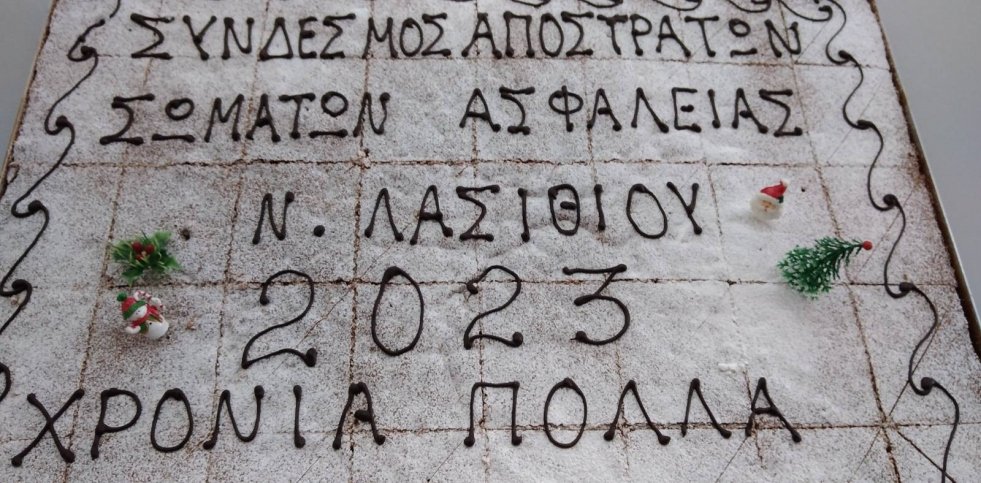 ΣΥΝΔΕΣΜΟΣ ΑΠΟΣΤΡΑΤΩΝ
ΣΩΜΑΤΩΝ ΑΣΦΑΛΕΙΑΣ
Ν. ΛΑΣΙΘΙΟΥ
2023
ΧΡΟΝΙΑ ΠΟΛΛΑ